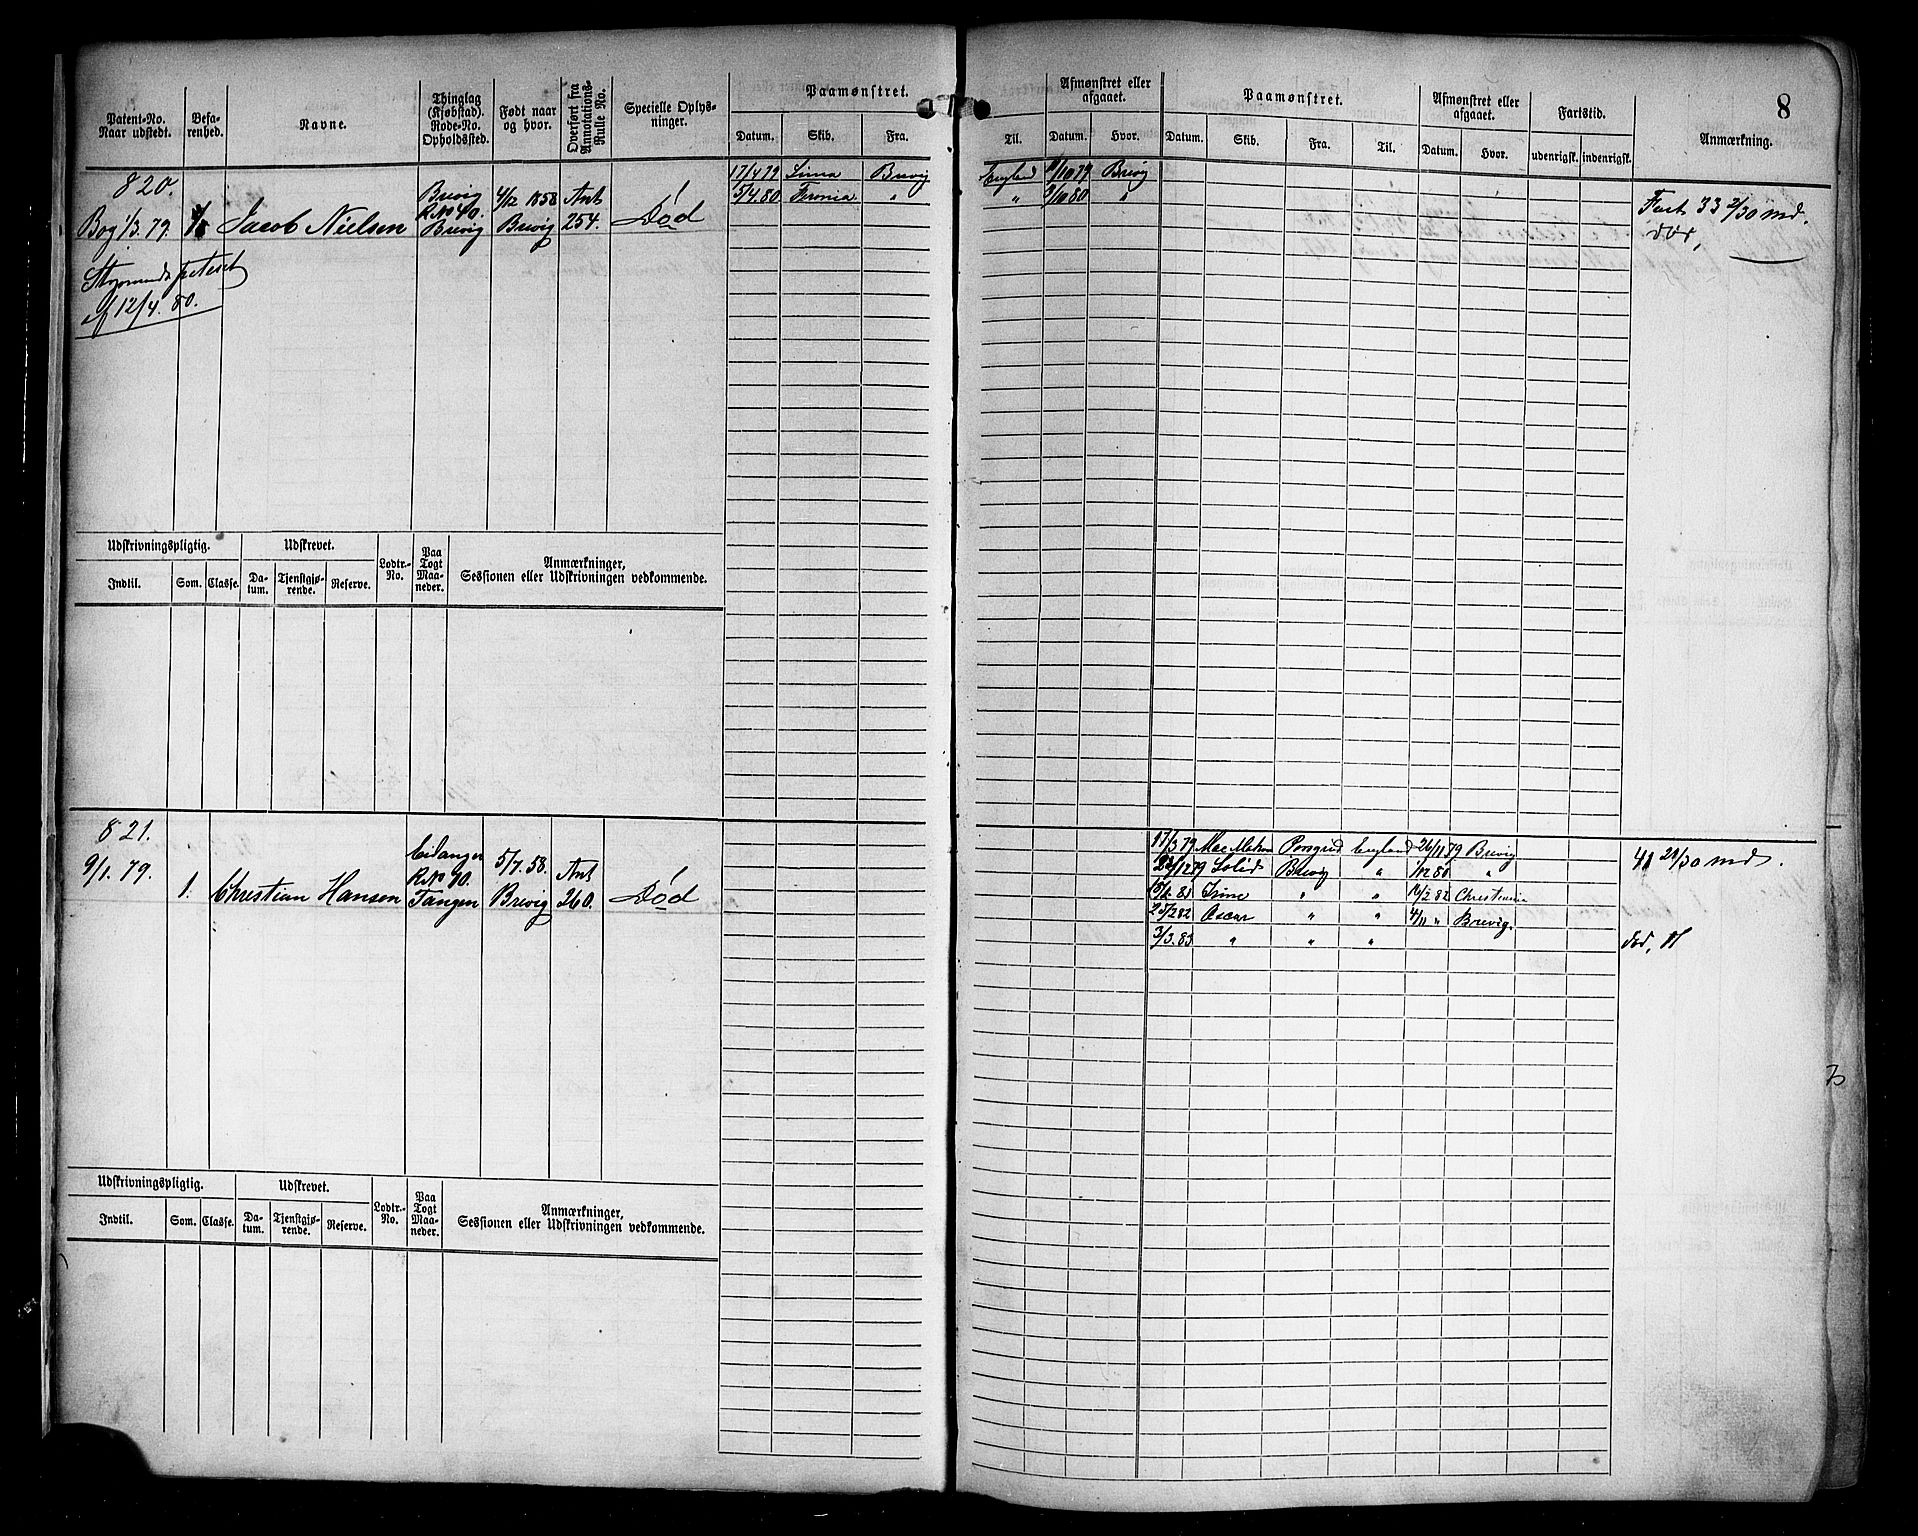 8
Patent-No. Naar udstedt.
Befa-renhed.
Navne.
Thinglag (Kjøbstad). Rode-No. Opholdssted.
Født naar og hvor.
Overført fra Annotations-Rulle No.
Specielle Oplys-ninger.
Paamønstret.
Datum. Skib. Fra.
Til.
Afmønstret eller afgaaet.
Datum. Hvor.
Paamønstret.
Datum. Skib. Fra. Til.
Afmønstret eller afgaaet.
Datum. Hvor.
Fartstid.
udenrigsk. indenrigsk.
Anmærkning.
820.
Bog 1/3. 79.
Jacob Nielsen
Brevig
R No 40.
Brevig
4/12 1858
Brevig
Ant
254.
Død
17/4 79 Brevig England 11/10 79 Brevig
5/4. 80 " " 3/10 80 "
Fart 33 2/30 md.
død,
af 12/4. 80.
Udskrivningspligtig.
Indtil. Som. Classe.
Udskrevet.
Da-tum. Tjenstgjø-rende. Reserve.
Lodtr.-No.
Paa Togt Maa-neder.
Anmærkninger,
Sessionen eller Udskrivningen vedkommende.
821.
9/1. 79.
1. Christian Hansen
Eidanger
R No 70.
Tangen
5/7. 58.
Brevig
Ant
260.
Død
17/3 79 Mac Mahon Porsgrund England 26/11 79 Brevig
22/12 79 Solid Brevig " 1/12 80 "
15/2. 81 Irine " " 14/2 82 Christiania
25/2 82 Oscar " " 4/11 " Brevig.
3/3. 83 " " "
41 28/30 md.
død,
Udskrivningspligtig.
Indtil. Som. Classe.
Udskrevet.
Da-tum. Tjenstgjø-rende. Reserve.
Lodtr.-No.
Paa Togt Maa-neder.
Anmærkninger,
Sessionen eller Udskrivningen vedkommende.